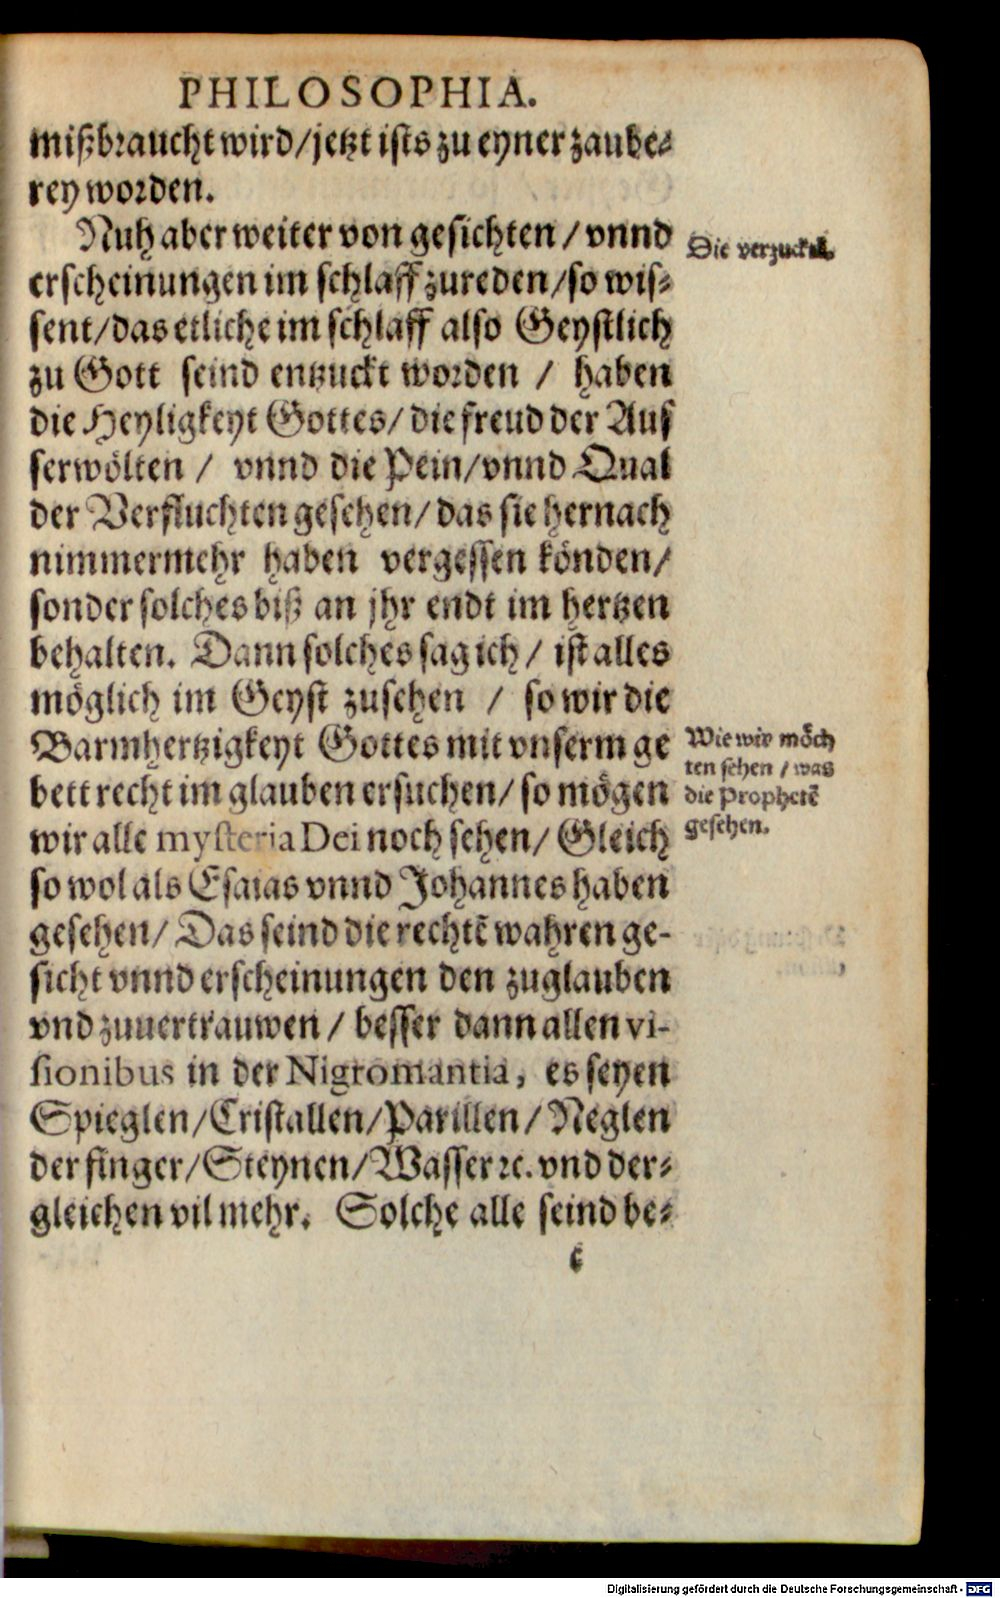 PHILOSOPHIA.
mißbraucht wird/jetzt ists zu eyner zaube⸗
rey worden.
Nuh aber weiter von gesichten / vnnd
erscheinungen im schlaff zureden/so wis⸗
sent/das etliche im schlaff also Geystlich
zu Gott seind entzuckt worden / haben
die Heyligkeyt Gottes/ die freud der Auß
serwölten / vnnd die Pein/vnnd Qual
der Verfluchten gesehen/ das sie hernach
nimmermehr haben vergessen könden/
sonder solches biß an jhr endt im hertzen
behalten. Dann solches sag ich / ist alles
möglich im Geyst zusehen / so wir die
Barmhertzigkeyt Gottes mit vnserm ge
bett recht im glauben ersuchen/ so mögen
wir alle mysteria Dei noch sehen/ Gleich
so wol als Esaias vnnd Johannes haben
gesehen/ Das seind die rechtẽ wahren ge-
sicht vnnd erscheinungen den zuglauben
vnd zuuertrauwen / besser dann allen vi-
sionibus in der Nigromantia, es seyen
Spieglen/Cristallen/Parillen/Neglen
der finger/Steynen/Wasser ꝛc. vnd der⸗
gleichen vil mehr. Solche alle seind be⸗
c
Die verzuckel.
Wie wir möch
ten sehen / was
die Prophetẽ
gesehen.
Digitalisierung gefördert durch die Deutsche Forschungsgemeinschaft - DFG